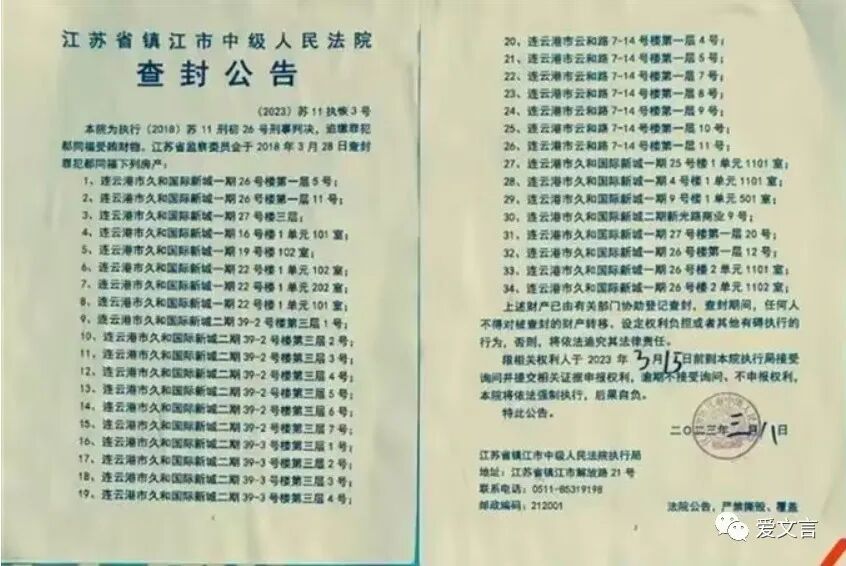 江苏省镇江市中级人民法院
查封公告
（2023）苏 11 执恢 3 号
本院为执行（2018）苏 11 刑初 26 号刑事判决，追缴罪犯
郝同福受贿财物。江苏省监察委员会于 2018 年 3 月 28 日查封
罪犯郝同福下列房产：
1、连云港市久和国际新城一期 26 号楼第一层 5 号；
2、连云港市久和国际新城一期 26 号楼第一层 11 号；
3、连云港市久和国际新城一期 27 号楼三层；
4、连云港市久和国际新城一期 16 号楼 1 单元 101 室；
5、连云港市久和国际新城一期 19 号楼 102 室；
6、连云港市久和国际新城一期 22 号楼 1 单元 102 室；
7、连云港市久和国际新城一期 22 号楼 1 单元 202 室；
8、连云港市久和国际新城一期 22 号楼 1 单元 101 室；
9、连云港市久和国际新城二期 39-2 号楼第三层 1 号；
10、连云港市久和国际新城二期 39-2 号楼第三层 2 号；
11、连云港市久和国际新城二期 39-2 号楼第三层 3 号；
12、连云港市久和国际新城二期 39-2 号楼第三层 4 号；
13、连云港市久和国际新城二期 39-2 号楼第三层 5 号；
14、连云港市久和国际新城二期 39-2 号楼第三层 6 号；
15、连云港市久和国际新城二期 39-2 号楼第三层 7 号；
16、连云港市久和国际新城二期 39-3 号楼第三层 1 号；
17、连云港市久和国际新城二期 39-3 号楼第三层 2 号；
18、连云港市久和国际新城二期 39-3 号楼第三层 3 号；
19、连云港市久和国际新城二期 39-3 号楼第三层 4 号；
20、连云港市云和路 7-14 号楼第一层 4 号；
21、连云港市云和路 7-14 号楼第一层 5 号；
22、连云港市云和路 7-14 号楼第一层 7 号；
23、连云港市云和路 7-14 号楼第一层 8 号；
24、连云港市云和路 7-14 号楼第一层 9 号；
25、连云港市云和路 7-14 号楼第一层 10 号；
26、连云港市云和路 7-14 号楼第一层 11 号；
27、连云港市久和国际新城一期 25 号楼 1 单元 1101 室；
28、连云港市久和国际新城一期 4 号楼 1 单元 1101 室；
29、连云港市久和国际新城一期 9 号楼 1 单元 501 室；
30、连云港市久和国际新城二期新光路商业 9 号；
31、连云港市久和国际新城一期 27 号楼第一层 20 号；
32、连云港市久和国际新城一期 26 号楼第一层 12 号；
33、连云港市久和国际新城一期 26 号楼 2 单元 1101 室；
34、连云港市久和国际新城一期 26 号楼 2 单元 1102 室；
上述财产已由有关部门协助登记查封，查封期间，任何人
不得对被查封的财产转移、设定权利负担或者其他有碍执行的
行为，否则，将依法追究其法律责任。
限相关权利人于 2023 年 3 月 15 日前到本院执行局接受
询问并提交相关证据申报权利，逾期不接受询问、不申报权利，
本院将依法强制执行，后果自负。
特此公告。
二〇二三年三月八日
江苏省镇江市中级人民法院执行局
地址：江苏省镇江市解放路 21 号
联系电话：0511-85319198
邮政编码：212001
法院公告，严禁撕毁、覆盖
爱文言